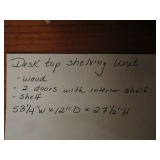 Desk top shelving Unit
- wood
- 2 doors with interior shelf
- shelf
53 1/4" W x 12" D x 27 1/2" H